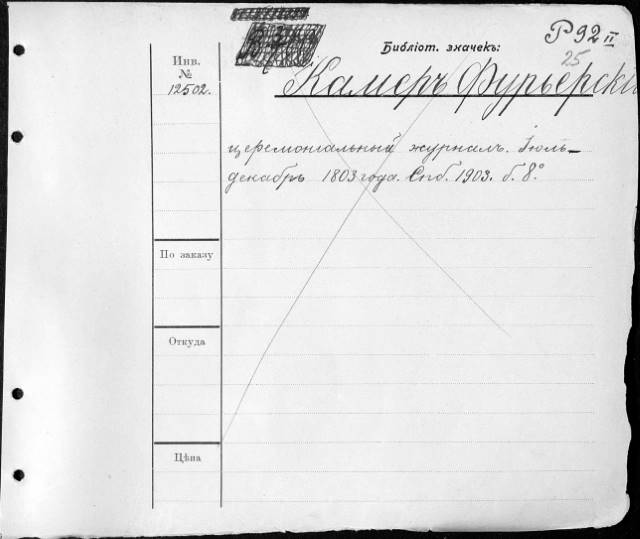 Библіот. значекъ:
Р 92 II
25
Инв.
№
12502.
Камеръ Фурьерскі
церемоніальный журналъ. Іюль-
декабрь 1803 года. Спб. 1903. б. 8°
По заказу
Откуда
Цѣна